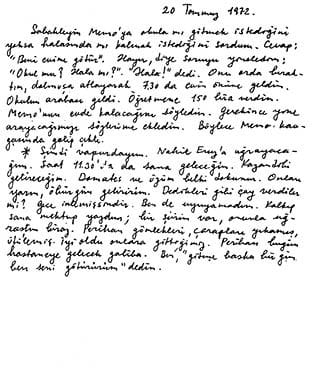 20 Temmuz 1972.
Sabahleyin Memo'ya okula mı gitmek istediğini
yoksa halasında mı kalmak istediğini sordum. Cevap;
"Beni evine götür". Hayır, diye soruyu yineledim;
"Okul mu? Hala mı?". "Hala!" dedi. Onu orda bırak-
tım, dolmuşa atlayarak 7.30 da evin önüne geldim.
Okulun arabası geldi. Öğretmene 150 lira verdim.
Memo'nun evde kalacağını söyledim. Gerekince yine
arayacağımızı sözlerime ekledim. Böylece Memo
galip çıktı.
* Şimdi vapurdayım. Nahit Eruz'a uğrayaca-
ğım. Saat 11.30'da sana geleceğim.
getireceğim. Domates ve üzüm belki dokunur. Onları
yarın, öbürgün getiririm. Dedikleri gibi çay verdiler
mi? Gece inlemişsindir. Ben de uyuyamadım. Kalkıp
sana mektup yazdım; bir şiirim var, onunla uğ-
raştım biraz. Perihan gömlekleri, çorapları yıkamış,
ütülemiş. İyi oldu onlara gittiğimiz. Perihan bugün
hastaneye gelecek galiba. Ben, "gitme başka bir gün
ben seni götürürüm" dedim.